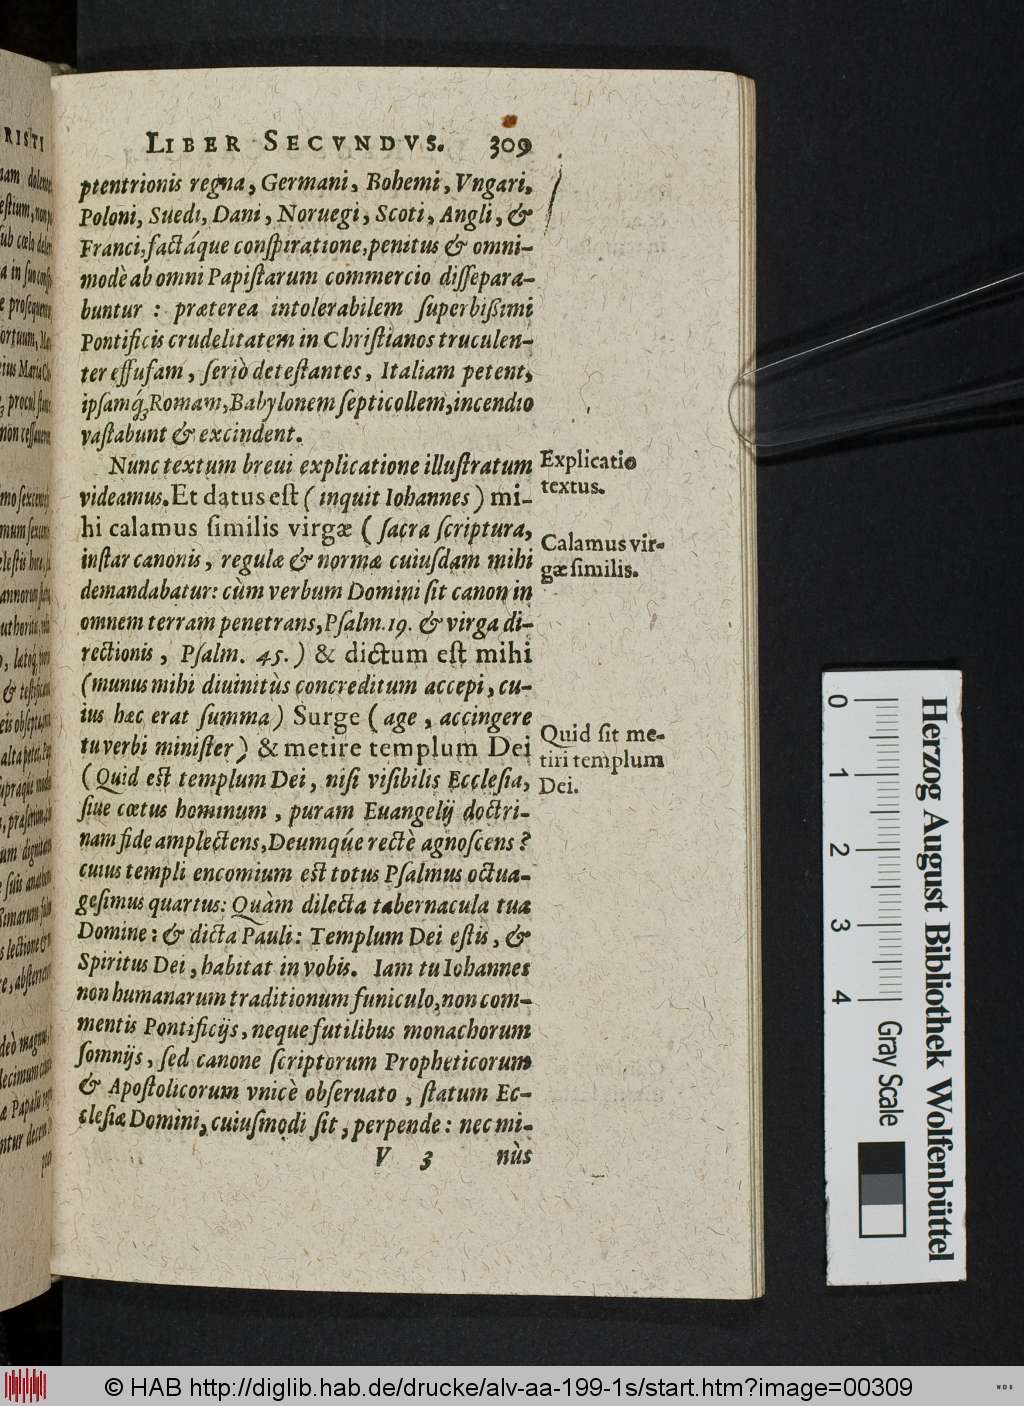 LIBER SECVNDVS. 309
ptentrionis regna, Germani, Bohemi, Vngari,
Poloni, Suedi, Dani, Noruegi, Scoti, Angli, &
Franci, factáque conſpiratione, penitus & omni-
modè ab omni Papiſtarum commercio diſſepara-
buntur : præterea intolerabilem ſuperbißimi
Pontificis crudelitatem in Chriſtianos truculen-
ter effuſam, ſeriò deteſtantes, Italiam petent,
ipſamq́ꝫ Romam, Babylonem ſepticollem, incendio
vaſtabunt & excindent.
Nunc textum breui explicatione illuſtratum
videamus. Et datus eſt ( inquit Iohannes ) mi-
hi calamus ſimilis virgæ ( ſacra ſcriptura,
inſtar canonis, regulæ & normæ cuiuſdam mihi
demandabatur: cùm verbum Domini ſit canon in
omnem terram penetrans, Pſalm. 19. & virga di-
rectionis, Pſalm. 45. ) & dictum eſt mihi
( munus mihi diuinitùs concreditum accepi, cu-
ius hæc erat ſumma ) Surge ( age, accingere
tu verbi miniſter ) & metire templum Dei
( Quid eſt templum Dei, niſi viſibilis Eccleſia,
ſiue cœtus hominum, puram Euangelij doctri-
nam fide amplectens, Deumqúe rectè agnoſcens ?
cuius templi encomium eſt totus Pſalmus octua-
geſimus quartus: Quàm dilecta tabernacula tua
Domine: & dicta Pauli: Templum Dei eſtis, &
Spiritus Dei, habitat in vobis. Iam tu Iohannes
non humanarum traditionum funiculo, non com-
mentis Pontificijs, neque futilibus monachorum
ſomnijs, ſed canone ſcriptorum Propheticorum
& Apoſtolicorum vnicè obſeruato, ſtatum Ec-
cleſiæ Domini, cuiuſmodi ſit, perpende: nec mi-
V 3 nùs
Explicatio
textus.
Calamus vir-
gæ ſimilis.
Quid ſit me-
tiri templum
Dei.
Herzog August Bibliothek Wolfenbüttel
0 1 2 3 4 Gray Scale
© HAB http://diglib.hab.de/drucke/alv-aa-199-1s/start.htm?image=00309